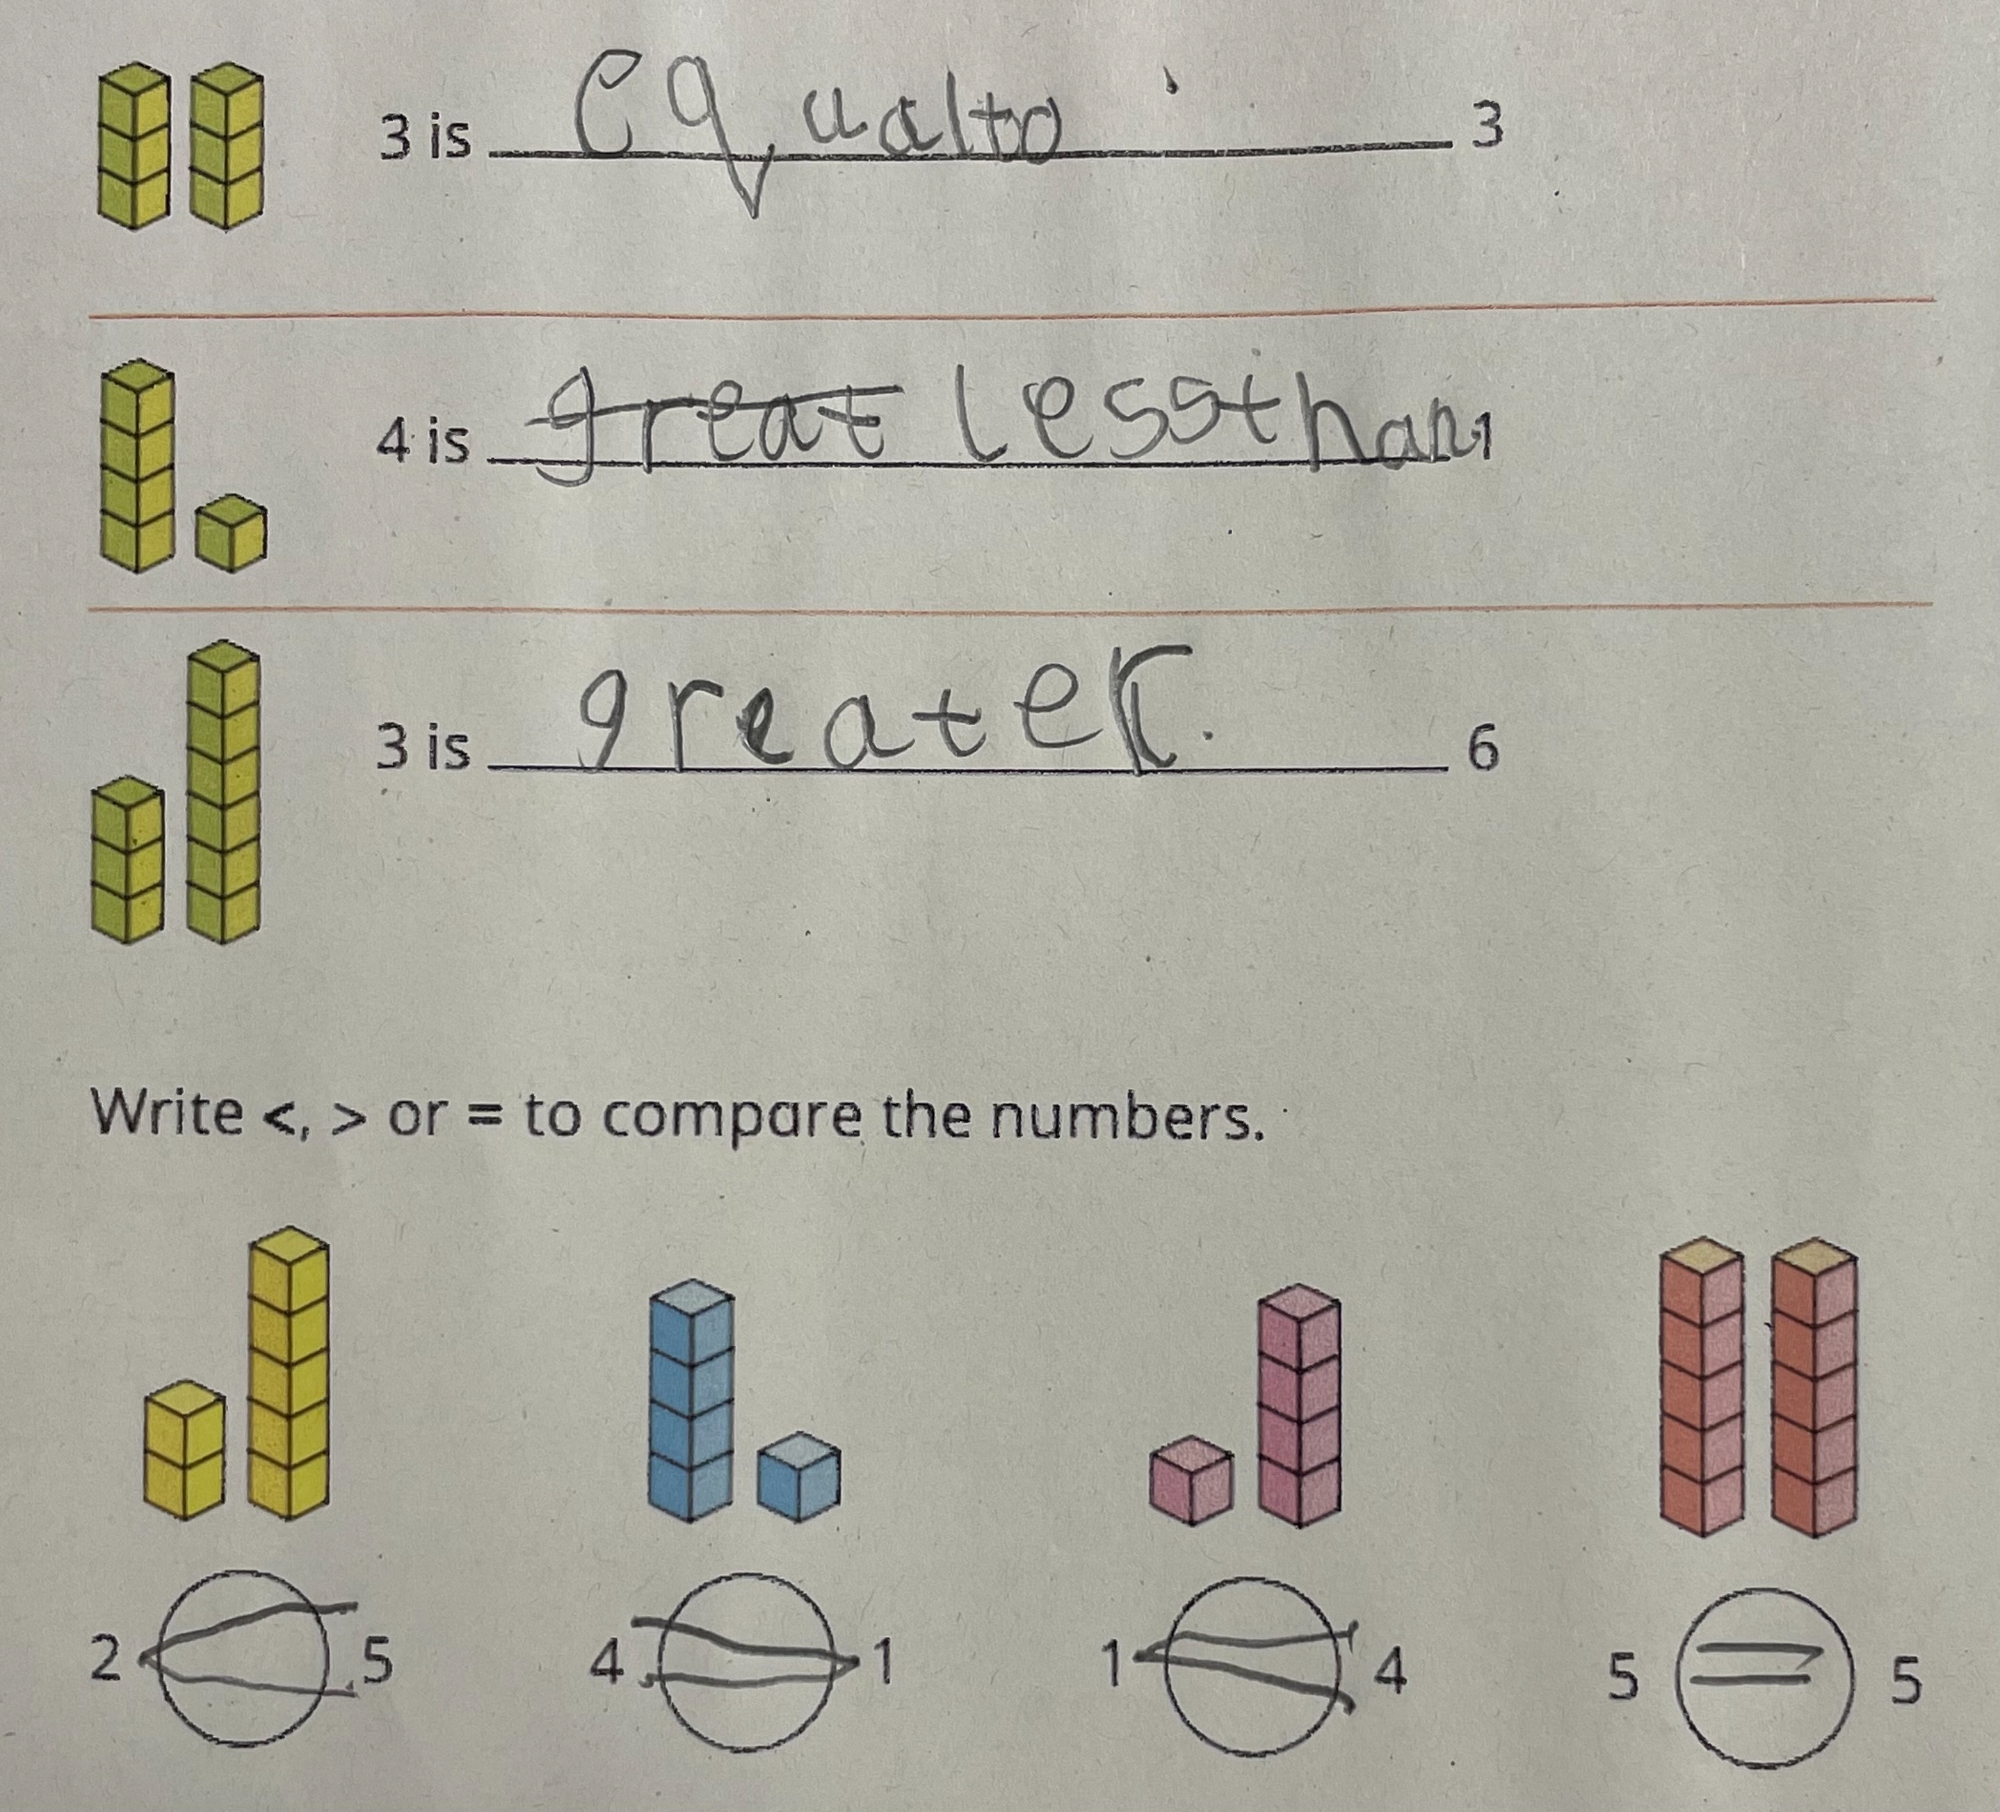 3 is equalto 3
4 is great lessthan 1
3 is greater. 6
Write <, > or = to compare the numbers.
2 < 5 4 > 1 1 < 4 5 = 5